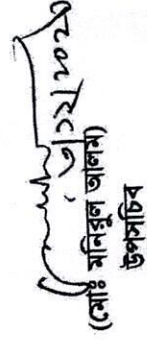 (মোঃ মনিরুল আলম)
উপসচিব